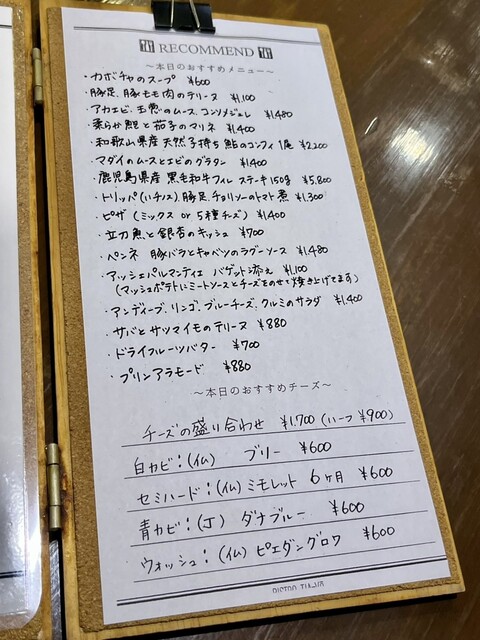 RECOMMEND
～本日のおすすめメニュー～
・カボチャのスープ ¥600
・豚足、豚モモ肉のテリーヌ ¥1,100
・アカエビ、玉葱のムース、コンソメジュレ ¥1,480
・柔らか鮹と茄子のマリネ ¥1,400
・和歌山県産 天然子持ち鮎のコンフィ 1尾 ¥2,200
・マダイのムースとエビのグラタン ¥1,400
・鹿児島県産 黒毛和牛フィレ ステーキ150g ¥5,800
・トリッパ(ハチノス)、豚足、チョリソーのトマト煮 ¥1,300
・ピザ (ミックス or 5種チーズ) ¥1,400
・立刀魚と銀杏のキッシュ ¥700
・ペンネ 豚バラとキャベツのラグーソース ¥1,480
・アッシェパルマンティエ バゲット添え ¥1,100
(マッシュポテトにミートソースとチーズをのせて焼き上げてます)
・アンディーブ、リンゴ、ブルーチーズ、クルミのサラダ ¥1,400
・サバとサツマイモのテリーヌ ¥880
・ドライフルーツバター ¥700
・プリンアラモード ¥880
～本日のおすすめチーズ～
チーズの盛り合わせ ¥1,700 (ハーフ ¥900)
白カビ：(仏) ブリー ¥600
セミハード：(仏) ミモレット 6ヶ月 ¥600
青カビ：(丁) ダナブルー ¥600
ウォッシュ：(仏) ピエダングロワ ¥600